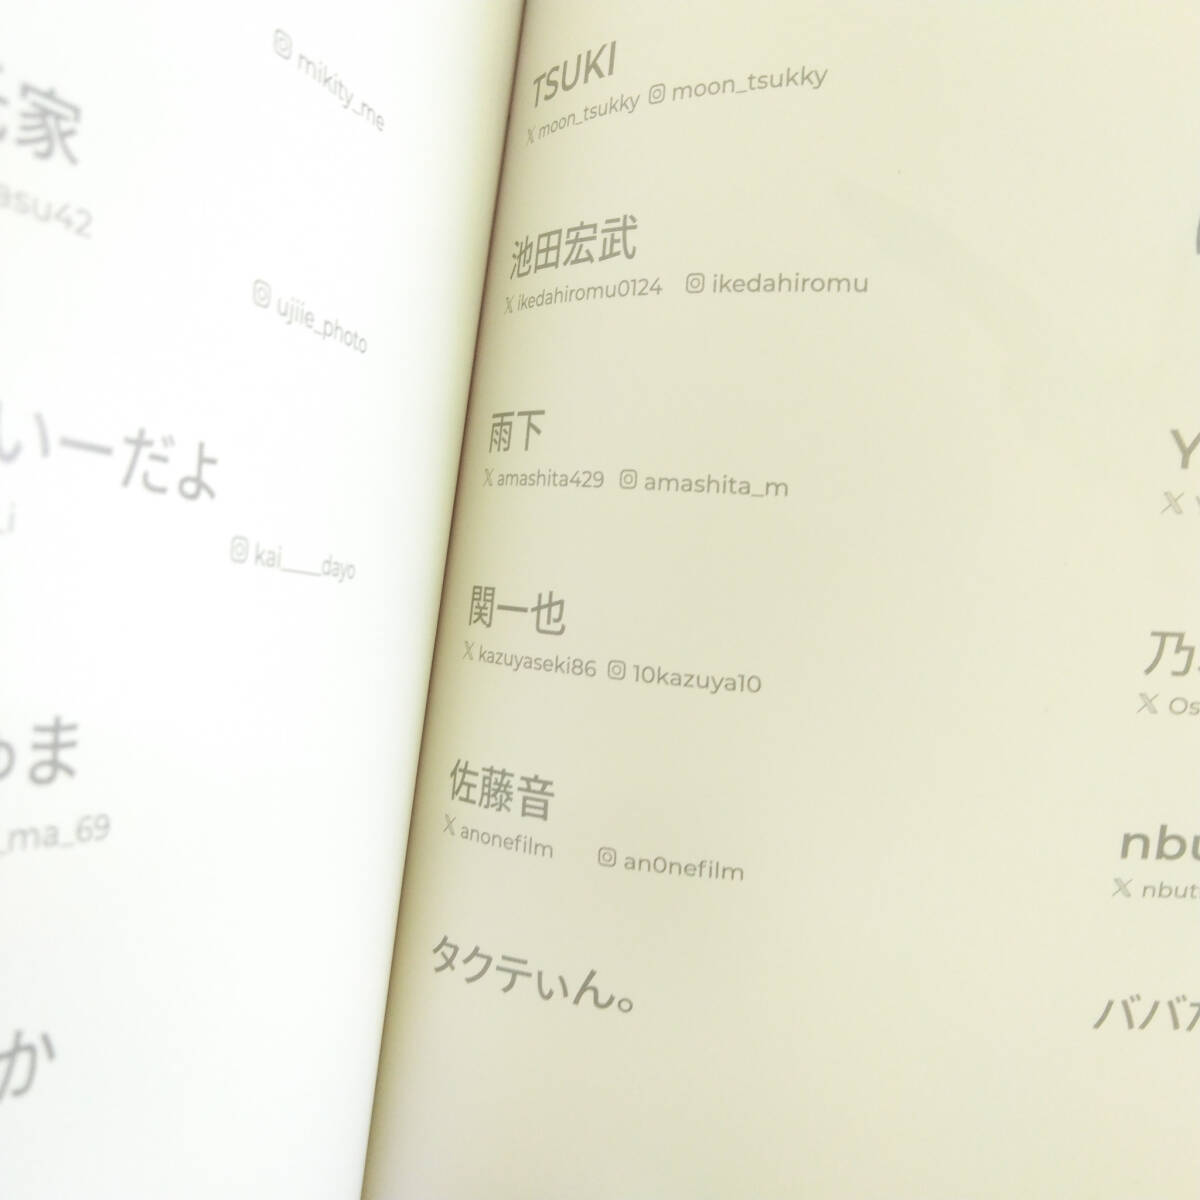 mikity_me
家
asu42
ujiie_photo
いーだよ
_i
kai____dayo
ま
_ma_69
か
TSUKI
X moon_tsukky moon_tsukky
池田宏武
X ikedahiromu0124 ikedahiromu
雨下
X amashita429 amashita_m
関一也
X kazuyaseki86 10kazuya10
佐藤音
X anonefilm an0nefilm
タクテぃん。
Y
X
乃
X Os
nbu
X nbut
ババ